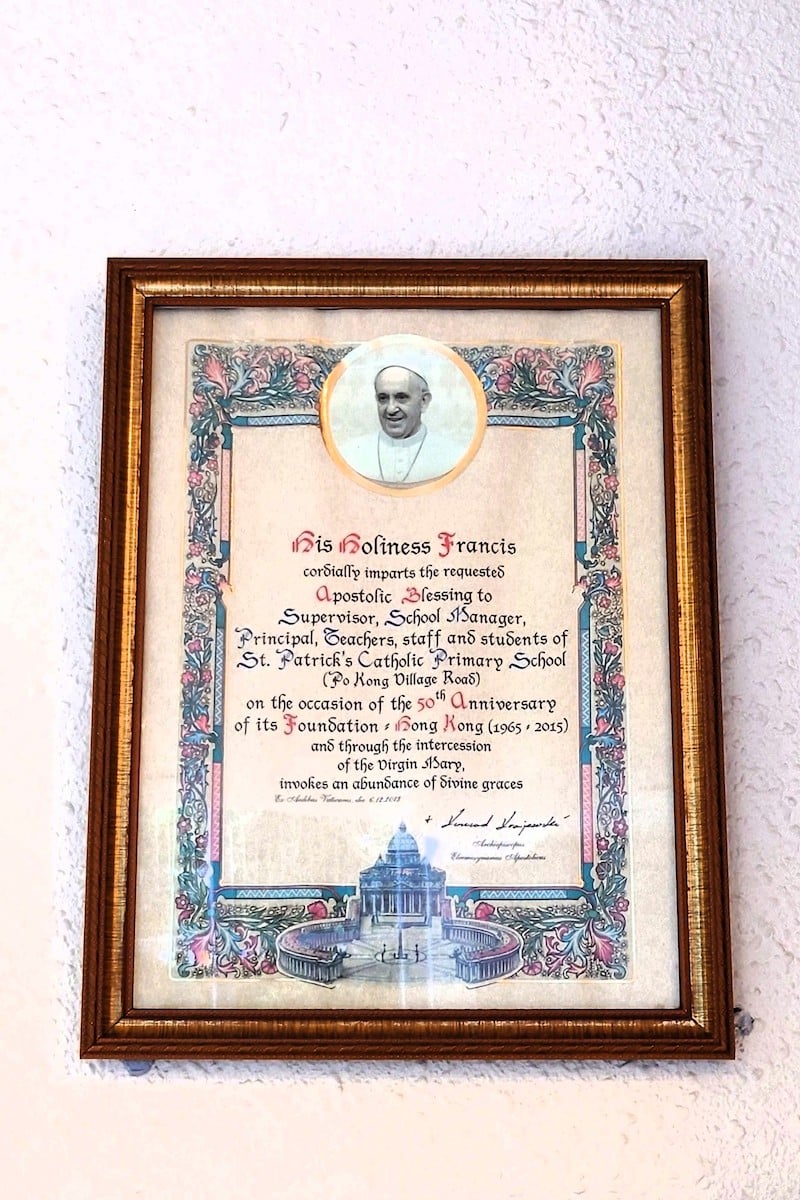 His Holiness Francis
cordially imparts the requested
Apostolic Blessing to
Supervisor, School Manager,
Principal, Teachers, staff and students of
St. Patrick's Catholic Primary School
(Po Kong Village Road)
on the occasion of the 50th Anniversary
of its Foundation - Hong Kong (1965 - 2015)
and through the intercession
of the Virgin Mary,
invokes an abundance of divine graces
Ex Aedibus Vaticanis, die 6.12.2013
Archiepiscopus
Eleemosynarius Apostolicus